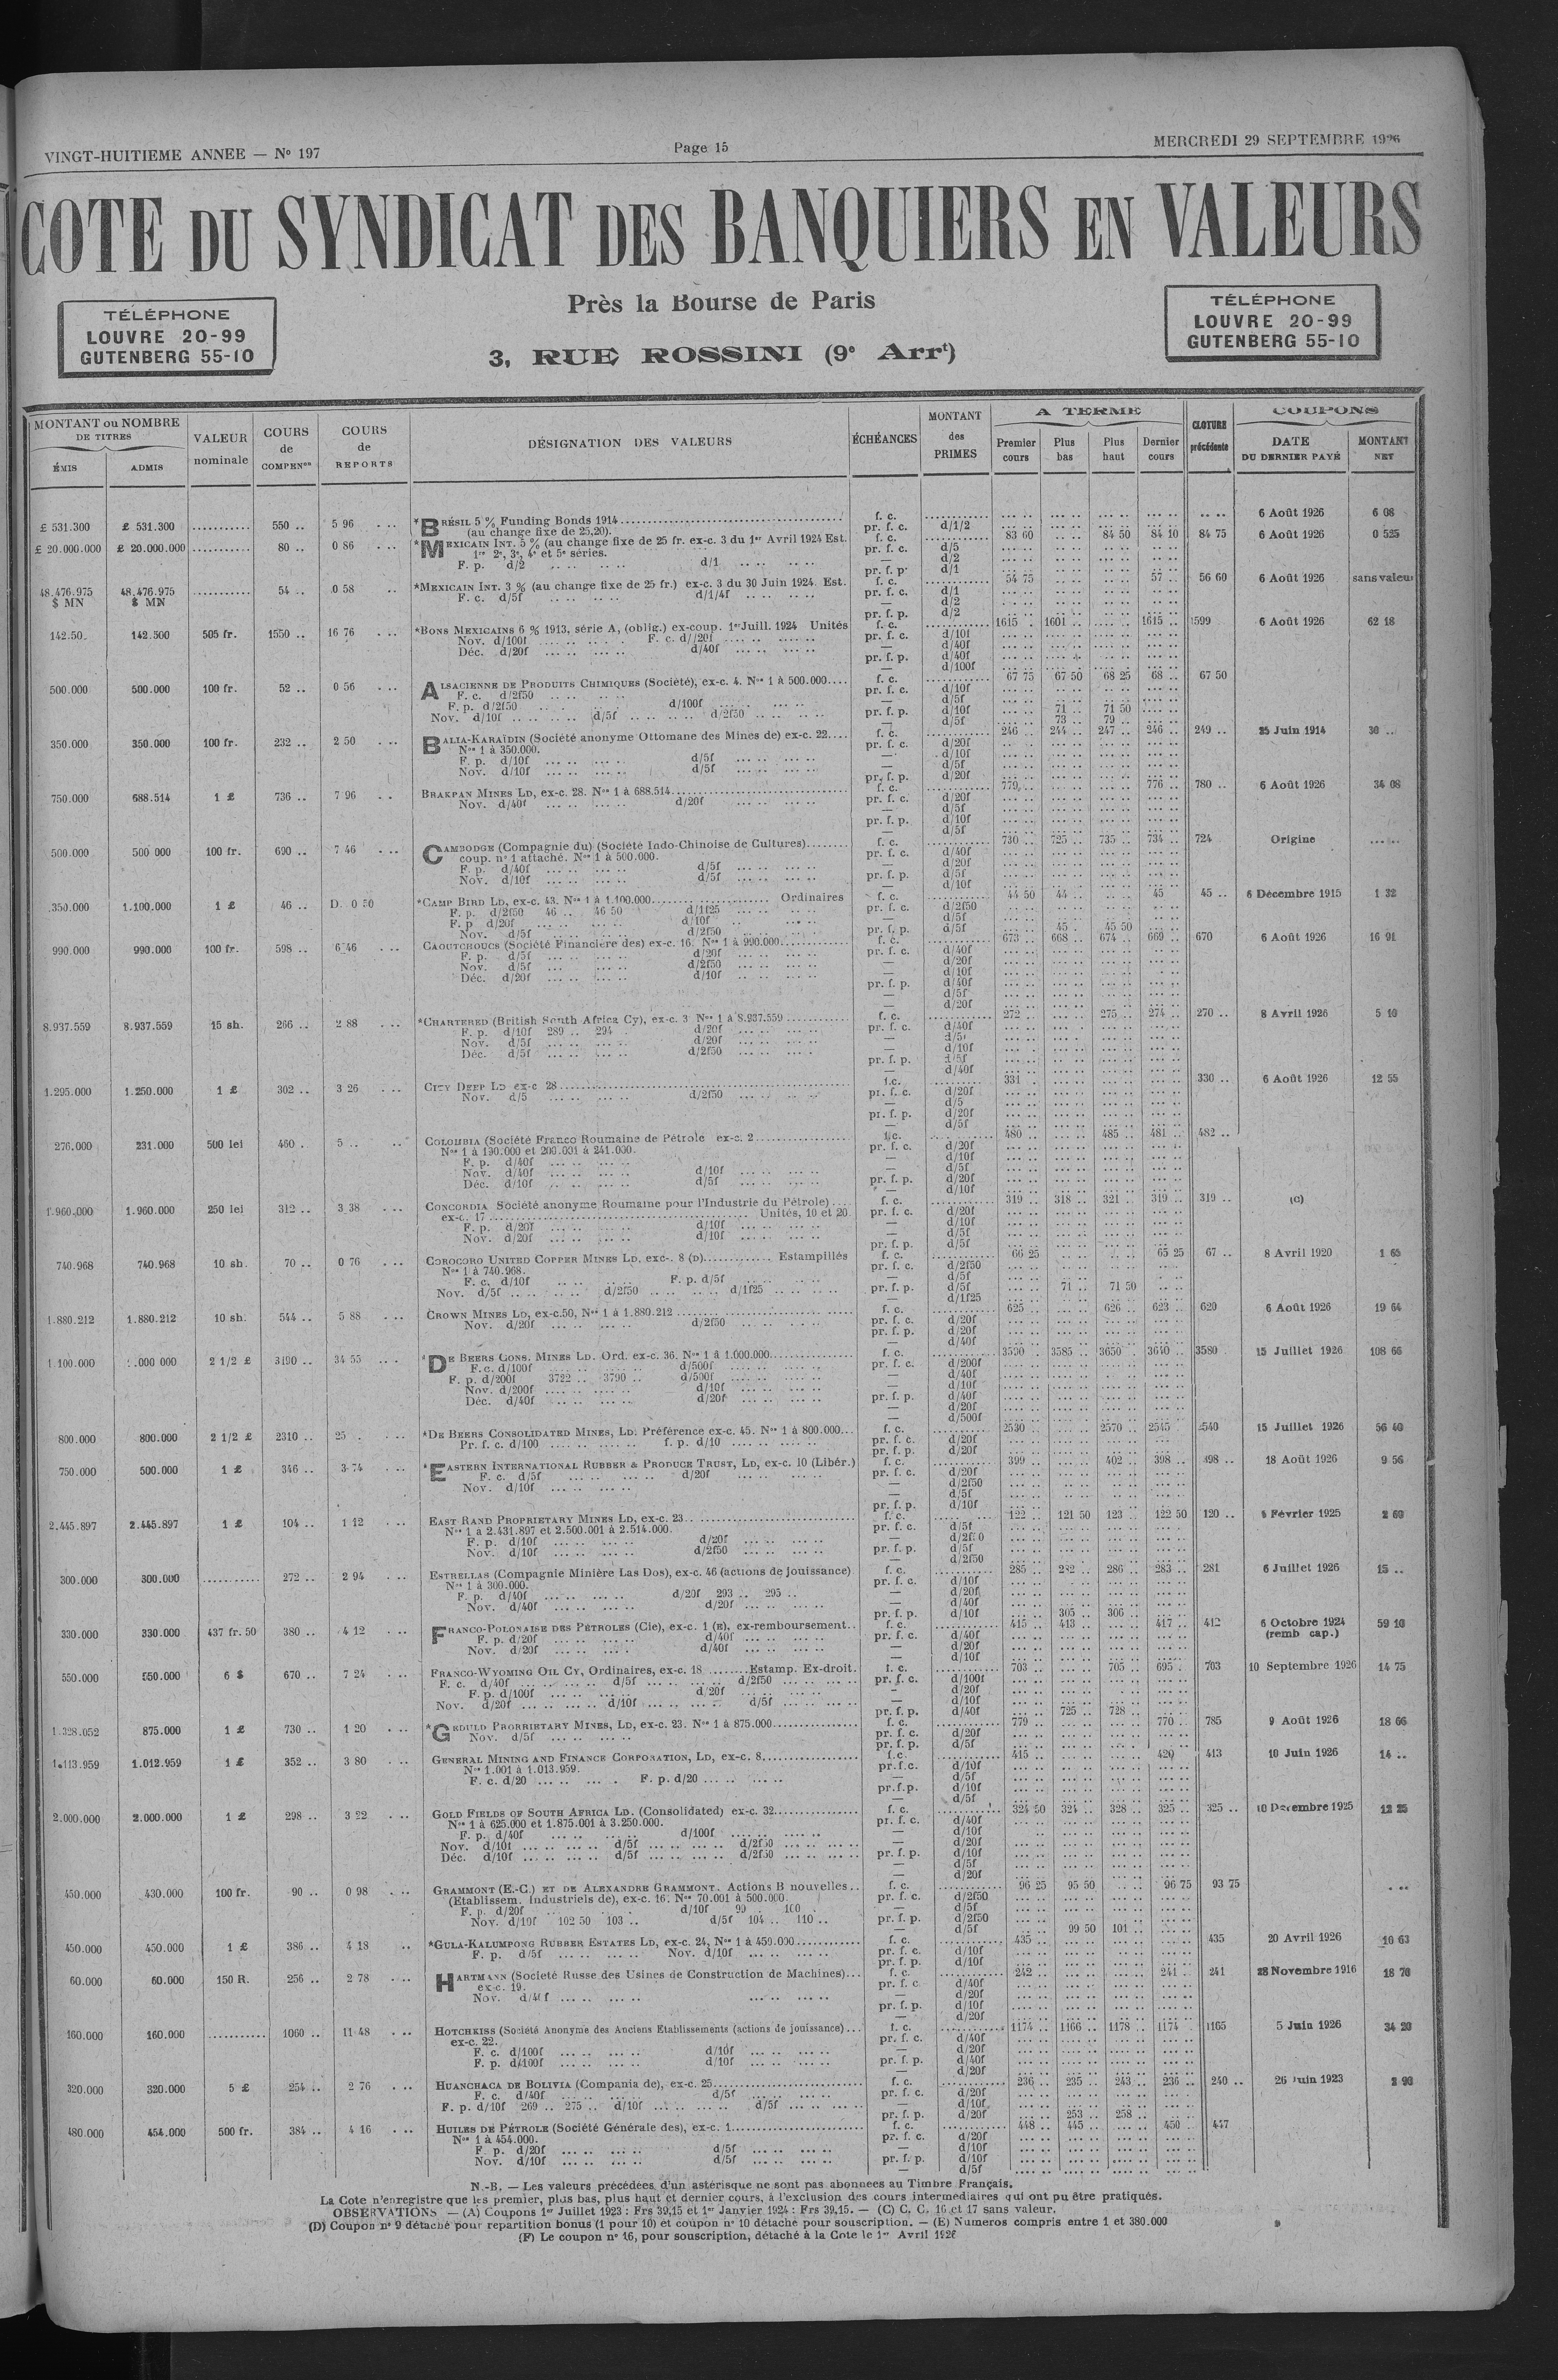 VINGT-HUITIEME ANNEE — No 197
Page 15
MERCREDI 29 SEPTEMBRE 1926
COTE DU SYNDICAT DES BANQUIERS EN VALEURS
Près la Bourse de Paris
3, RUE ROSSINI (9e Arrt)
TÉLÉPHONE
LOUVRE 20-99
GUTENBERG 55-10
TÉLÉPHONE
LOUVRE 20-99
GUTENBERG 55-10
MONTANT ou NOMBRE DE TITRES
ÉMIS
ADMIS
VALEUR nominale
COURS de COMPENon
COURS de REPORTS
DÉSIGNATION DES VALEURS
ÉCHÉANCES
MONTANT des PRIMES
A TERME
Premier cours
Plus bas
Plus haut
Dernier cours
CLOTURE précédente
COUPONS
DATE DU DERNIER PAYÉ
MONTANT NET
£ 531.300 £ 531.300 .......... 550 .. 5 96 *BRÉSIL 5 % Funding Bonds 1914 f. c. 6 Août 1926 6 08
(au change fixe de 25,20). pr. f. c. d/1/2
£ 20.000.000 £ 20.000.000 .......... 80 .. 0 86 *MEXICAIN INT. 5 % (au change fixe de 25 fr. ex-c. 3 du 1er Avril 1924 Est. f. c. 83 60 84 50 84 10 84 75 6 Août 1926 0 525
1re 2e, 3e, 4e et 5e séries. pr. f. c. d/5
F. p. d/2 d/1 — d/2
pr. f. p. d/1
48.476.975 $ MN 48.476.975 $ MN .......... 54 .. 0 58 *MEXICAIN INT. 3 % (au change fixe de 25 fr.) ex-c. 3 du 30 Juin 1924. Est. f. c. 54 75 57 .. 56 60 6 Août 1926 sans valeur
F. c. d/5f d/1/4f pr. f. c. d/1
— d/2
pr. f. p. d/2
142.50 142.500 505 fr. 1550 .. 16 76 *BONS MEXICAINS 6 % 1913, série A, (oblig.) ex-coup. 1er Juill. 1924 Unités f. c. 1615 1601 1615 1599 6 Août 1926 62 18
Nov. d/100f F. c. d//20f pr. f. c. d/10f
Déc. d/20f d/40f — d/40f
pr. f. p. d/40f
— d/100f
500.000 500.000 100 fr. 52 .. 0 56 ALSACIENNE DE PRODUITS CHIMIQUES (Société), ex-c. 4. Nos 1 à 500.000 f. c. 67 75 67 50 68 25 68 .. 67 50
F. c. d/2f50 pr. f. c. d/10f
F. p. d/2f50 d/100f — d/5f
Nov. d/10f d/5f d/2f50 pr. f. p. d/10f 71 .. 71 50
— d/5f 73 .. 79 ..
350.000 350.000 100 fr. 232 .. 2 50 BALIA-KARAÏDIN (Société anonyme Ottomane des Mines de) ex-c. 22 f. c. 246 .. 244 .. 247 .. 246 .. 249 .. 25 Juin 1914 30 ..
Nos 1 à 350.000. pr. f. c. d/20f
F. p. d/10f d/5f — d/10f
Nov. d/10f d/5f — d/5f
pr. f. p. d/20f
750.000 688.514 1 £ 736 .. 7 96 BRAKPAN MINES LD, ex-c. 28. Nos 1 à 688.514 f. c. 779 776 .. 780 .. 6 Août 1926 34 08
Nov. d/40f d/20f pr. f. c. d/20f
— d/5f
pr. f. p. d/10f
— d/5f
500.000 500 000 100 fr. 690 .. 7 46 CAMBODGE (Compagnie du) (Société Indo-Chinoise de Cultures) f. c. 730 725 735 734 724 Origine
coup. no 1 attaché. Nos 1 à 500.000. pr. f. c. d/40f
F. p. d/40f d/5f — d/20f
Nov. d/10f d/5f pr. f. p. d/5f
— d/10f
350.000 1.100.000 1 £ 46 .. D. 0 50 *CAMP BIRD LD, ex-c. 43. Nos 1 à 1.100.000 Ordinaires f. c. 44 50 44 45 45 .. 6 Décembre 1915 1 32
F. p. d/2f50 46 .. 46 50 d/1f25 pr. f. c. d/2f50
F. p d/20f d/10f — d/5f
Nov. d/5f d/2f50 pr. f. p. d/5f 45 . 45 50
990.000 990.000 100 fr. 598 .. 6 46 CAOUTCHOUCS (Société Financière des) ex-c. 16. Nos 1 à 990.000 f. c. 673 668 674 669 670 6 Août 1926 16 91
F. p. d/5f d/20f pr. f. c. d/40f
Nov. d/5f d/2f50 — d/20f
Déc. d/20f d/10f — d/10f
pr. f. p. d/40f
— d/5f
— d/20f
8.937.559 8.937.559 15 sh. 266 .. 2 88 *CHARTERED (British South Africa Cy), ex-c. 3 Nos 1 à 8.937.559 f. c. 272 275 274 270 .. 8 Avril 1926 5 10
F. p. d/10f 289 .. 294 d/20f pr. f. c. d/40f
Nov. d/5f d/20f — d/5f
Déc. d/5f d/2f50 — d/10f
pr. f. p. d/5f
— d/40f
1.295.000 1.250.000 1 £ 302 .. 3 26 CITY DEEP LD ex-c 28 f.c. 331 330 .. 6 Août 1926 12 55
Nov. d/5 d/2f50 pr. f. c. d/20f
— d/5
pr. f. p. d/20f
— d/5f
276.000 231.000 500 lei 460 . 5 .. COLOMBIA (Société Franco Roumaine de Pétrole ex-c. 2 f.c. 480 485 481 482 ..
Nos 1 à 190.000 et 200.001 à 241.000. pr. f. c. d/20f
F. p. d/40f — d/10f
Nov. d/40f d/10f — d/5f
Déc. d/10f d/5f pr. f. p. d/20f
— d/10f
1.960.000 1.960.000 250 lei 312 .. 3 38 CONCORDIA Société anonyme Roumaine pour l'Industrie du Pétrole) f. c. 319 318 321 319 319 .. (C)
ex-c. 17 Unités, 10 et 20. pr. f. c. d/20f
F. p. d/20f d/10f — d/10f
Nov. d/20f d/10f — d/5f
pr. f. p. d/5f
740.968 740.968 10 sh. 70 .. 0 76 COROCORO UNITED COPPER MINES LD, exc-. 8 (D) Estampillés f. c. 66 25 65 25 67 .. 8 Avril 1920 1 65
Nos 1 à 740.968. pr. f. c. d/2f50
F. c. d/10f F. p. d/5f — d/5f
Nov. d/5f d/2f50 d/1f25 pr. f. p. d/5f 71 .. 71 50
— d/1f25
1.880.212 1.880.212 10 sh. 544 .. 5 88 CROWN MINES LD, ex-c.50, Nos 1 à 1.880.212 f. c. 625 626 623 620 6 Août 1926 19 64
Nov. d/20f d/2f50 pr. f. c. d/20f
pr. f. p. d/20f
— d/40f
1.100.000 .000 000 2 1/2 £ 3190 .. 34 55 *DE BEERS CONS. MINES LD. Ord. ex-c. 36. Nos 1 à 1.000.000 f. c. 3590 3585 3650 3640 3580 15 Juillet 1926 108 66
F.c. d/100f d/500f pr. f. c. d/200f
F. p. d/200f 3722 .. 3790 .. d/500f — d/40f
Nov. d/200f d/10f — d/10f
Déc. d/40f d/20f pr. f. p. d/40f
— d/20f
— d/500f
800.000 800.000 2 1/2 £ 2310 .. 25 *DE BEERS CONSOLIDATED MINES, LD: Préférence ex-c. 45. Nos 1 à 800.000 f. c. 2530 2570 2545 2540 15 Juillet 1926 56 40
Pr. f. c. d/100 f. p. d/10 pr. f. c. d/20f
pr. f. p. d/20f
750.000 500.000 1 £ 346 .. 3 74 *EASTERN INTERNATIONAL RUBBER & PRODUCE TRUST, LD, ex-c. 10 (Libér.) f. c. 399 402 398 398 .. 18 Août 1926 9 56
F. c. d/5f d/20f pr. f. c. d/20f
Nov. d/10f — d/2f50
— d/5f
pr. f. p. d/10f
2.445.897 2.445.897 1 £ 104 .. 1 12 EAST RAND PROPRIETARY MINES LD, ex-c. 23 f. c. 122 121 50 123 122 50 120 .. Février 1925 2 60
Nos 1 à 2.431.897 et 2.500.001 à 2.514.000. pr. f. c. d/5f
F. p. d/10f d/20f — d/2f50
Nov. d/10f d/2f50 pr. f. p. d/5f
— d/2f50
300.000 300.000 .......... 272 .. 2 94 ESTRELLAS (Compagnie Minière Las Dos), ex-c. 46 (actions de jouissance) f. c. 285 282 286 283 281 6 Juillet 1926 15 ..
Nos 1 à 300.000. pr. f. c. d/10f
F. p. d/40f d/20f 293 .. 295 .. — d/20f
Nov. d/40f d/20f — d/40f
pr. f. p. d/10f 305 306
330.000 330.000 437 fr. 50 380 .. 4 12 FRANCO-POLONAISE DES PÉTROLES (Cie), ex-c. 1 (E), ex-remboursement f. c. 415 413 417 412 6 Octobre 1924 59 10
F. p. d/20f d/40f pr. f. c. d/40f (remb cap.)
Nov. d/20f d/40f — d/20f
— d/10f
550.000 550.000 6 $ 670 .. 7 24 FRANCO-WYOMING OIL CY, Ordinaires, ex-c. 18 Estamp. Ex-droit. f. c. 703 705 695 703 10 Septembre 1926 14 75
F. c. d/40f d/5f d/2f50 pr. f. c. d/100f
F. p. d/100f d/20f — d/20f
Nov. d/20f d/10f d/5f — d/10f
pr. f. p. d/40f 725 728
1.328.052 875.000 1 £ 730 .. 1 20 *GEDULD PRORRIETARY MINES, LD, ex-c. 23. Nos 1 à 875.000 f. c. 779 770 785 9 Août 1926 18 66
Nov. d/5f pr. f. c. d/20f
pr. f. p. d/5f
1.113.959 1.012.959 1 £ 352 .. 3 80 GENERAL MINING AND FINANCE CORPORATION, LD, ex-c. 8 f.c. 415 420 413 10 Juin 1926 14 ..
Nos 1.001 à 1.013.959. pr.f.c. d/10f
F. c. d/20 F. p. d/20 — d/5f
pr.f.p. d/10f
— d/5f
2.000.000 2.000.000 1 £ 298 .. 3 22 GOLD FIELDS OF SOUTH AFRICA LD. (Consolidated) ex-c. 32 f. c. 324 50 324 328 325 325 .. 10 Décembre 1925 12 25
Nos 1 à 625.000 et 1.875.001 à 3.250.000. pr. f. c. d/40f
F. p. d/40f d/100f — d/10f
Nov. d/10f d/5f d/2f50 — d/20f
Déc. d/10f d/5f d/2f50 pr. f. p. d/10f
— d/5f
— d/20f
450.000 430.000 100 fr. 90 .. 0 98 GRAMMONT (E.-C.) ET DE ALEXANDRE GRAMMONT. Actions B nouvelles f. c. 96 25 95 50 96 75 93 75
(Etablissem. industriels de), ex-c. 16. Nos 70.001 à 500.000. pr. f. c. d/2f50
F. p. d/20f d/10f 99 . 100 . — d/5f
Nov. d/10f 102 50 103 .. d/5f 104 .. 110 .. pr. f. p. d/2f50
— d/5f 99 50 101 ..
450.000 450.000 1 £ 386 .. 4 18 *GULA-KALUMPONG RUBBER ESTATES LD, ex-c. 24, Nos 1 à 450.000 f. c. 435 435 20 Avril 1926 10 63
F. p. d/5f Nov. d/10f pr. f. c. d/10f
pr. f. p. d/10f
60.000 60.000 150 R. 256 .. 2 78 HARTMANN (Societé Russe des Usines de Construction de Machines) f. c. 242 241 241 28 Novembre 1916 18 70
ex-c. 19. pr. f. c d/40f
Nov. d/40f — d/20f
pr. f. p. d/10f
— d/20f
160.000 160.000 .......... 1060 .. 11 48 HOTCHKISS (Société Anonyme des Anciens Etablissements (actions de jouissance) f. c. 1174 1166 1178 1174 1165 5 Juin 1926 34 20
ex-c. 22. pr. f. c. d/40f
F. c. d/100f d/10f — d/20f
F. p. d/100f d/10f pr. f. p. d/40f
— d/20f
320.000 320.000 5 £ 254 .. 2 76 HUANCHACA DE BOLIVIA (Compania de), ex-c. 25 f. c. 236 235 243 236 240 .. 26 Juin 1923 2 90
F. c. d/40f d/5f pr. f. c. d/20f
F. p. d/10f 269 .. 275 .. d/10f d/5f — d/10f
pr. f. p. d/20f 253 258
480.000 454.000 500 fr. 384 .. 4 16 HUILES DE PÉTROLE (Société Générale des), ex-c. 1 f. c. 448 445 450 447
Nos 1 à 454.000. pr. f. c. d/20f
F p. d/20f d/5f — d/10f
Nov. d/10f d/5f pr. f. p. d/10f
— d/5f
N.-B. — Les valeurs précédées d'un astérisque ne sont pas abonnees au Timbre Français.
La Cote n'enregistre que les premier, plus bas, plus haut et dernier cours, à l'exclusion des cours intermédiaires qui ont pu être pratiqués.
OBSERVATIONS — (A) Coupons 1er Juillet 1923 : Frs 39,15 et 1er Janvier 1924 : Frs 39,15. — (C) C. C. 16 et 17 sans valeur.
(D) Coupon no 9 détaché pour repartition bonus (1 pour 10) et coupon no 10 détaché pour souscription. — (E) Numeros compris entre 1 et 380.000
(F) Le coupon no 16, pour souscription, détaché à la Cote le 1er Avril 1926